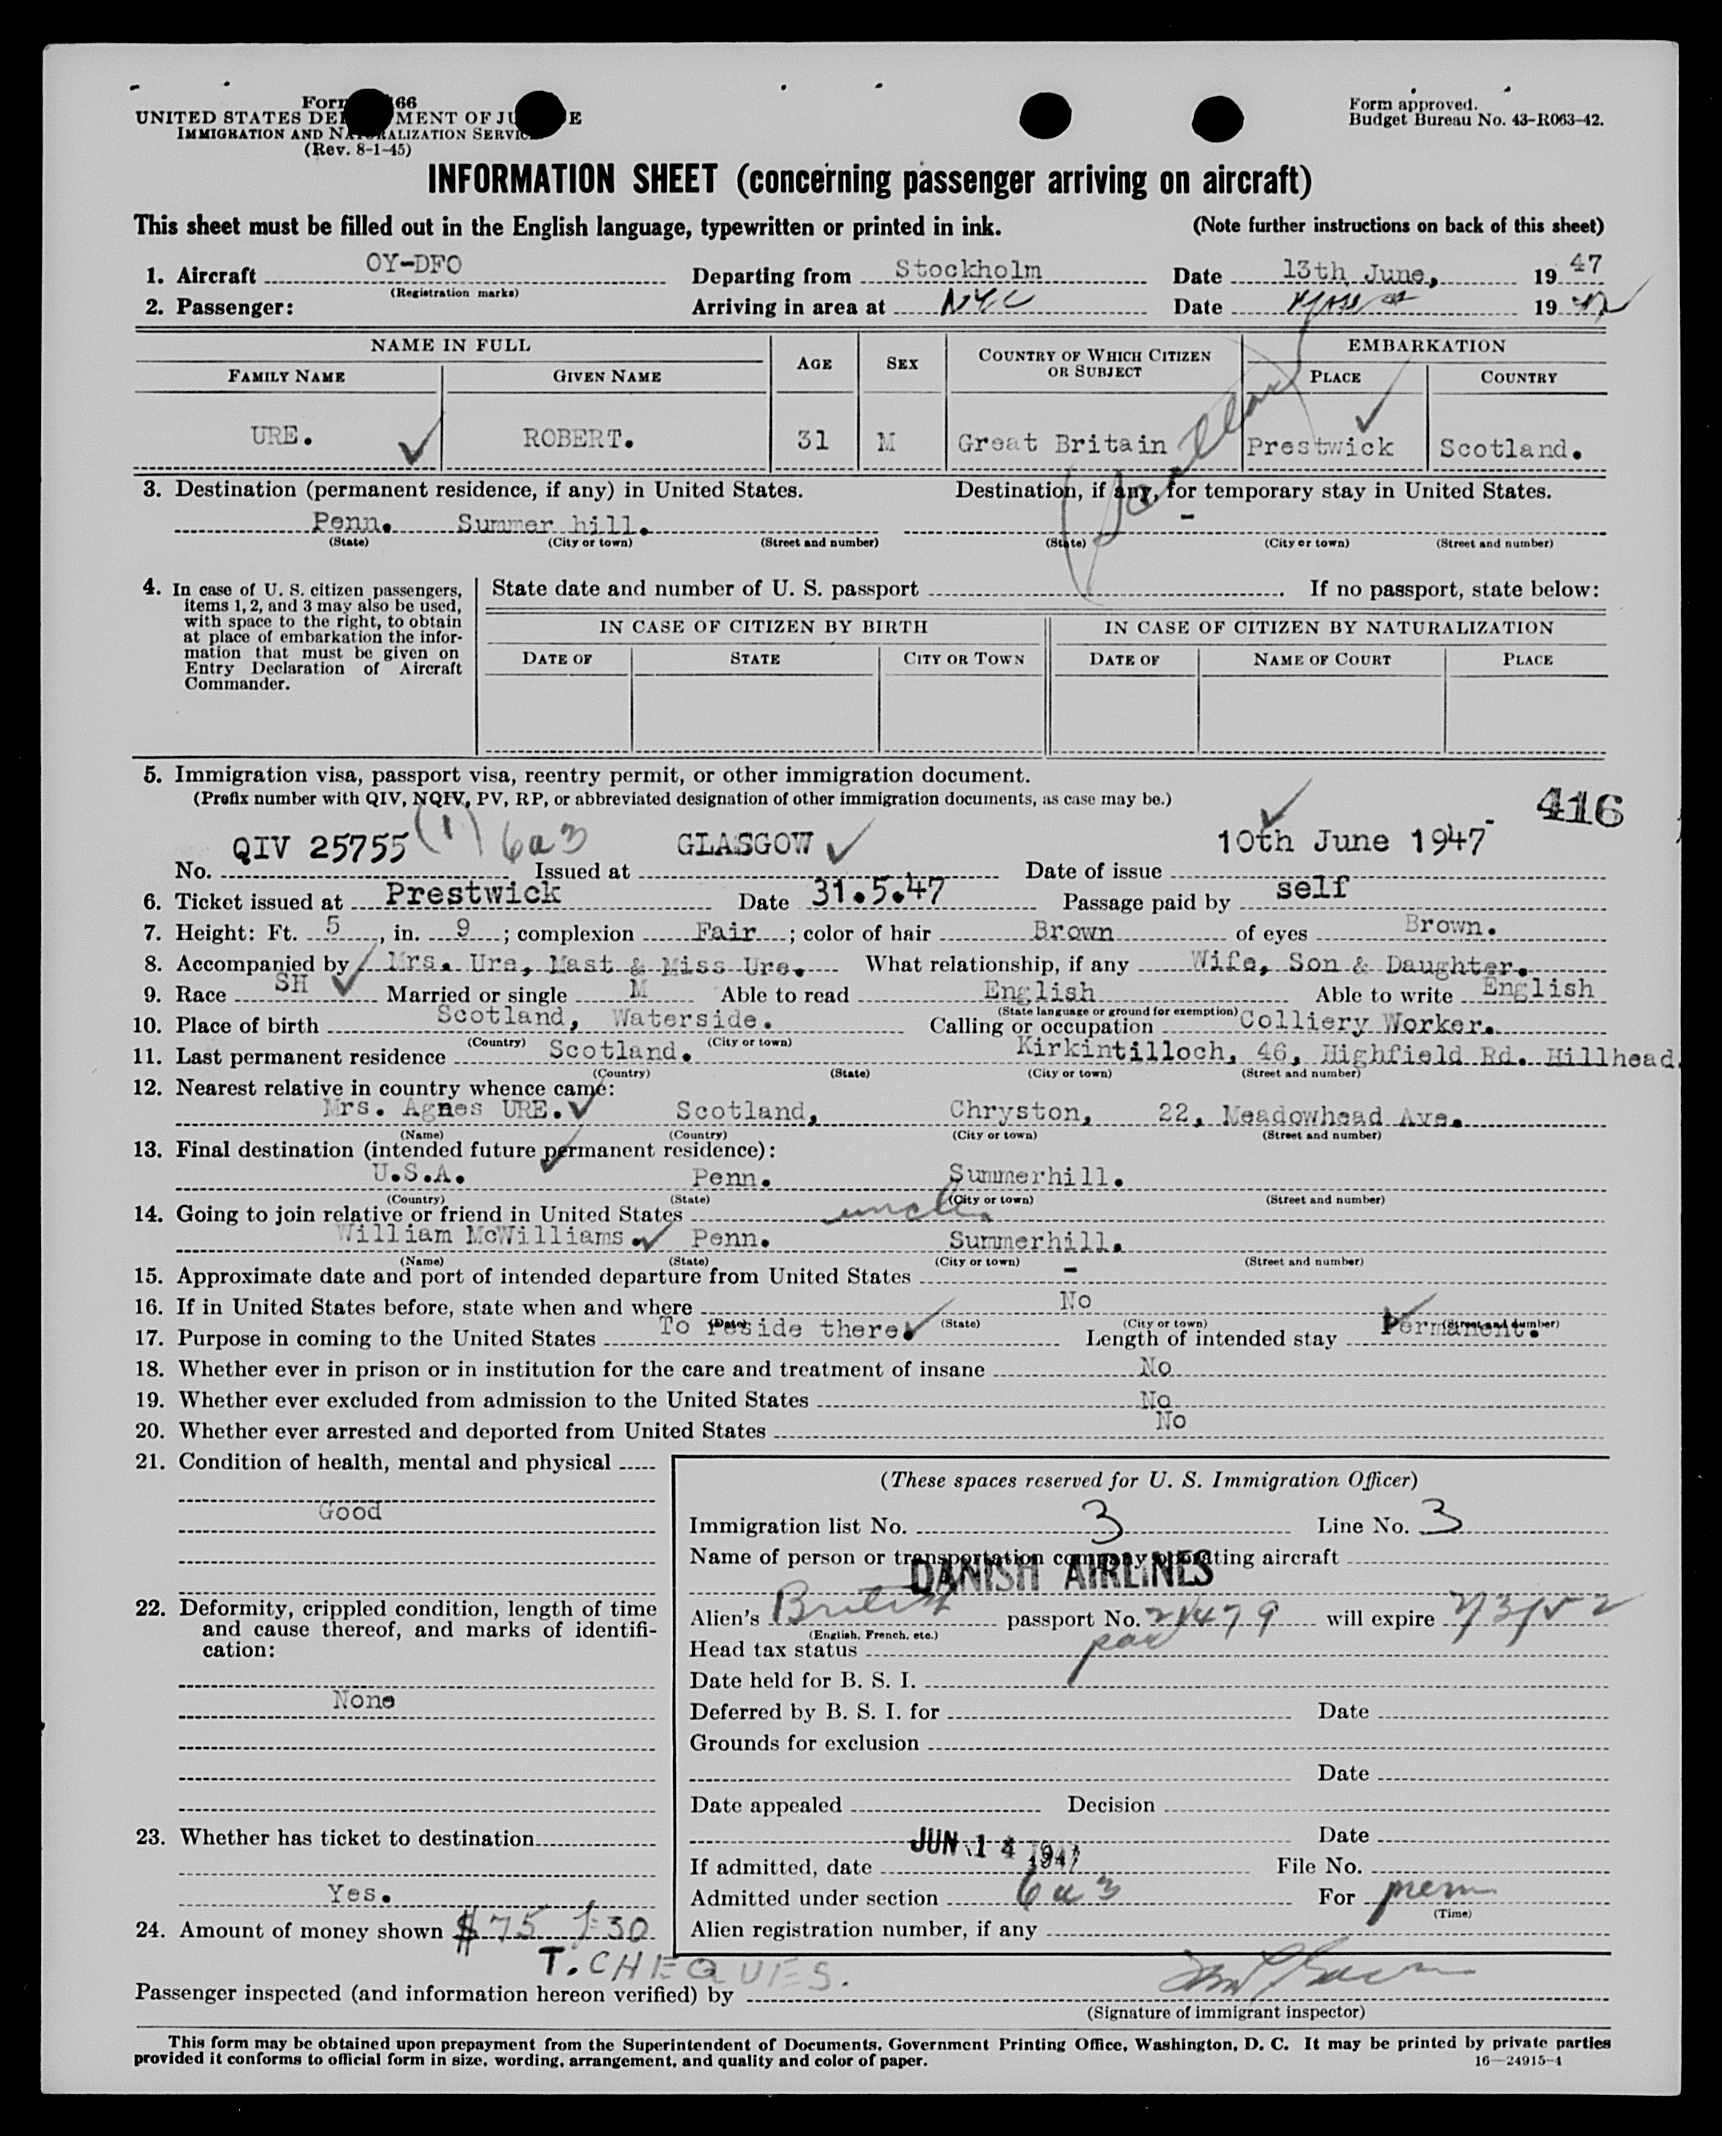 Form 66
UNITED STATES DEPARTMENT OF JUSTICE
IMMIGRATION AND NATURALIZATION SERVICE
(Rev. 8-1-45)
Form approved.
Budget Bureau No. 43-R063-42.
INFORMATION SHEET (concerning passenger arriving on aircraft)
This sheet must be filled out in the English language, typewritten or printed in ink. (Note further instructions on back of this sheet)
1. Aircraft OY-DFO Departing from Stockholm Date 13th June, 1947
(Registration marks)
2. Passenger: Arriving in area at NYC Date June 1947
NAME IN FULL AGE SEX COUNTRY OF WHICH CITIZEN OR SUBJECT EMBARKATION
FAMILY NAME GIVEN NAME PLACE COUNTRY
URE. ROBERT. 31 M Great Britain Prestwick Scotland.
3. Destination (permanent residence, if any) in United States. Destination, if any, for temporary stay in United States.
Penn. Summer hill. -
(State) (City or town) (Street and number) (State) (City or town) (Street and number)
4. In case of U. S. citizen passengers, items 1, 2, and 3 may also be used, with space to the right, to obtain at place of embarkation the information that must be given on Entry Declaration of Aircraft Commander.
State date and number of U. S. passport . If no passport, state below:
IN CASE OF CITIZEN BY BIRTH IN CASE OF CITIZEN BY NATURALIZATION
DATE OF STATE CITY OR TOWN DATE OF NAME OF COURT PLACE
5. Immigration visa, passport visa, reentry permit, or other immigration document.
(Prefix number with QIV, NQIV, PV, RP, or abbreviated designation of other immigration documents, as case may be.)
416
No. QIV 25755 (1) 6a3 Issued at GLASGOW Date of issue 10th June 1947
6. Ticket issued at Prestwick Date 31.5.47 Passage paid by self
7. Height: Ft. 5, in. 9; complexion Fair; color of hair Brown of eyes Brown.
8. Accompanied by Mrs. Ure, Mast & Miss Ure. What relationship, if any Wife, Son & Daughter.
9. Race SH Married or single M Able to read English Able to write English
(State language or ground for exemption)
10. Place of birth Scotland, Waterside. Calling or occupation Colliery Worker.
(Country) (City or town)
11. Last permanent residence Scotland. Kirkintilloch, 46, Highfield Rd. Hillhead.
(Country) (State) (City or town) (Street and number)
12. Nearest relative in country whence came:
Mrs. Agnes URE. Scotland, Chryston, 22, Meadowhead Ave.
(Name) (Country) (City or town) (Street and number)
13. Final destination (intended future permanent residence):
U.S.A. Penn. Summerhill.
(Country) (State) (City or town) (Street and number)
14. Going to join relative or friend in United States uncle
William McWilliams. Penn. Summerhill.
(Name) (State) (City or town) (Street and number)
15. Approximate date and port of intended departure from United States -
16. If in United States before, state when and where No
(Date) (State) (City or town) (Street and number)
17. Purpose in coming to the United States To reside there. Length of intended stay Permanent.
18. Whether ever in prison or in institution for the care and treatment of insane No
19. Whether ever excluded from admission to the United States No
20. Whether ever arrested and deported from United States No
21. Condition of health, mental and physical
Good
22. Deformity, crippled condition, length of time and cause thereof, and marks of identification:
None
23. Whether has ticket to destination
Yes.
24. Amount of money shown $75 £30
T. CHEQUES.
(These spaces reserved for U. S. Immigration Officer)
Immigration list No. 3 Line No. 3
Name of person or transportation company operating aircraft
DANISH AIRLINES
Alien's British passport No. 21479 will expire 7/3/52
(English, French, etc.)
Head tax status paid
Date held for B. S. I.
Deferred by B. S. I. for Date
Grounds for exclusion
Date
Date appealed Decision
Date
If admitted, date JUN 14 1947 File No.
Admitted under section 6a3 For perm
(Time)
Alien registration number, if any
Passenger inspected (and information hereon verified) by
(Signature of immigrant inspector)
This form may be obtained upon prepayment from the Superintendent of Documents, Government Printing Office, Washington, D. C. It may be printed by private parties
provided it conforms to official form in size, wording, arrangement, and quality and color of paper. 16—24915-1